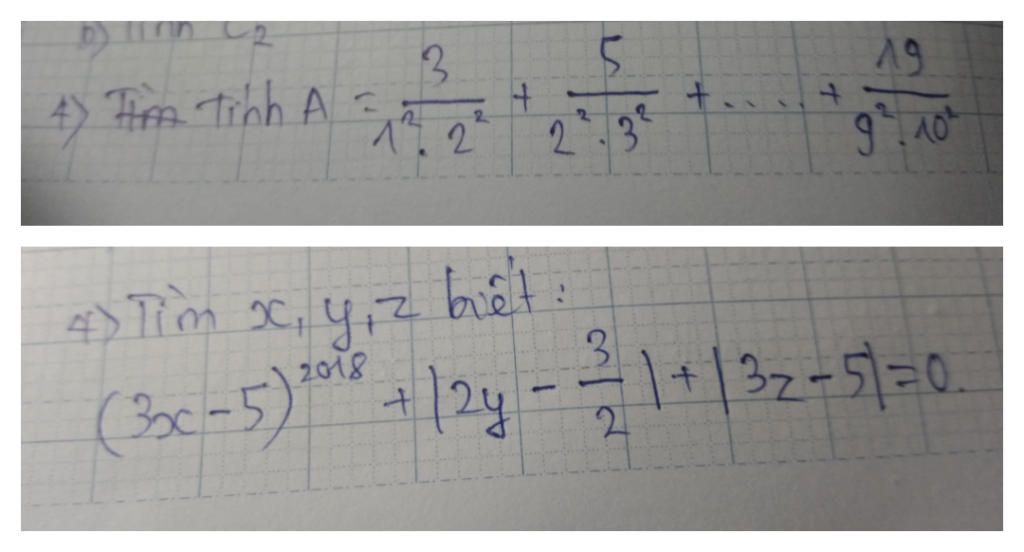 b) Tính C2
4) Tìm Tính A = 3/(1². 2²) + 5/(2² . 3²) + ..... + 19/(9² . 10²)
4) Tìm x, y, z biết :
(3x - 5)²⁰¹⁸ + |2y - 3/2| + |3z - 5| = 0.